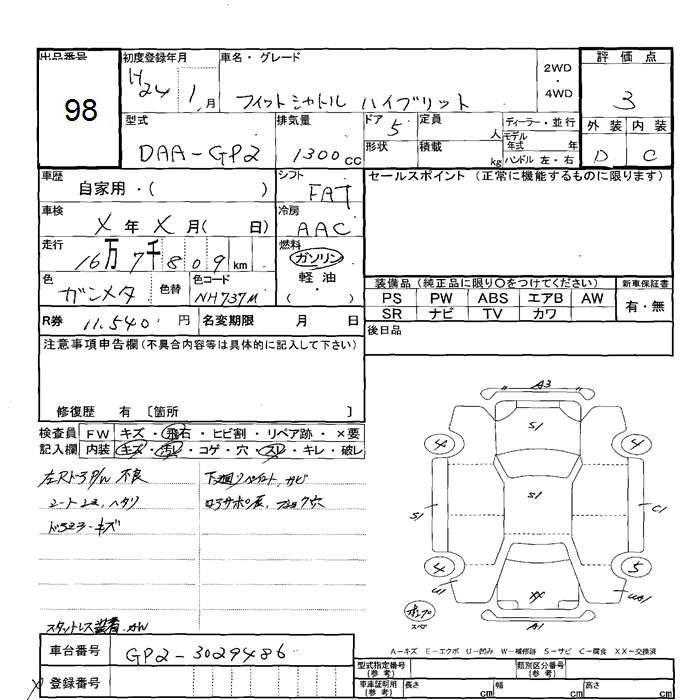 出品番号
98
初度登録年月
H24 1月
車名・グレード
フィットシャトル ハイブリット
2WD
・
4WD
評価点
3
外装 内装
D C
型式
DAA-GP2
排気量
1300cc
ドア 5
形状
定員 人
積載 kg
ディーラー・並行
モデル年式 年
ハンドル 左・右
車歴
自家用・( )
シフト
FAT
セールスポイント (正常に機能するものに限ります)
車検
X年X月( 日)
冷房
AAC
走行
16万7千809km
燃料
ガソリン
・
軽油
・
( )
色
ガンメタ
色替
色コード
NH737M
装備品 (純正品に限り○をつけてください)
新車保証書
PS PW ABS エアB AW
SR ナビ TV カワ
有・無
R券 11,540円
名変期限 月 日
後日品
注意事項申告欄(不具合内容等は具体的に記入して下さい)
修復歴 有 〔箇所 〕
検査員 FW キズ・飛石・ヒビ割・リペア跡・×要
記入欄 内装 キズ・汚レ・コゲ・穴・スレ・キレ・破レ
左Rドア P/W 不良
シート ヘタリ
キズ
下廻リペイント、サビ
穴
スタットレス装着
車台番号 GP2-3029486
登録番号
A3
S1
4 4
S1 S1 C1
4 5
U1 XX UA1
A1
A-キズ E-エクボ U-凹み W-補修跡 S-サビ C-腐食 XX-交換済
型式指定番号(参考)
類別区分番号(参考)
車庫証明用(参考) 長さ cm 幅 cm 高さ cm